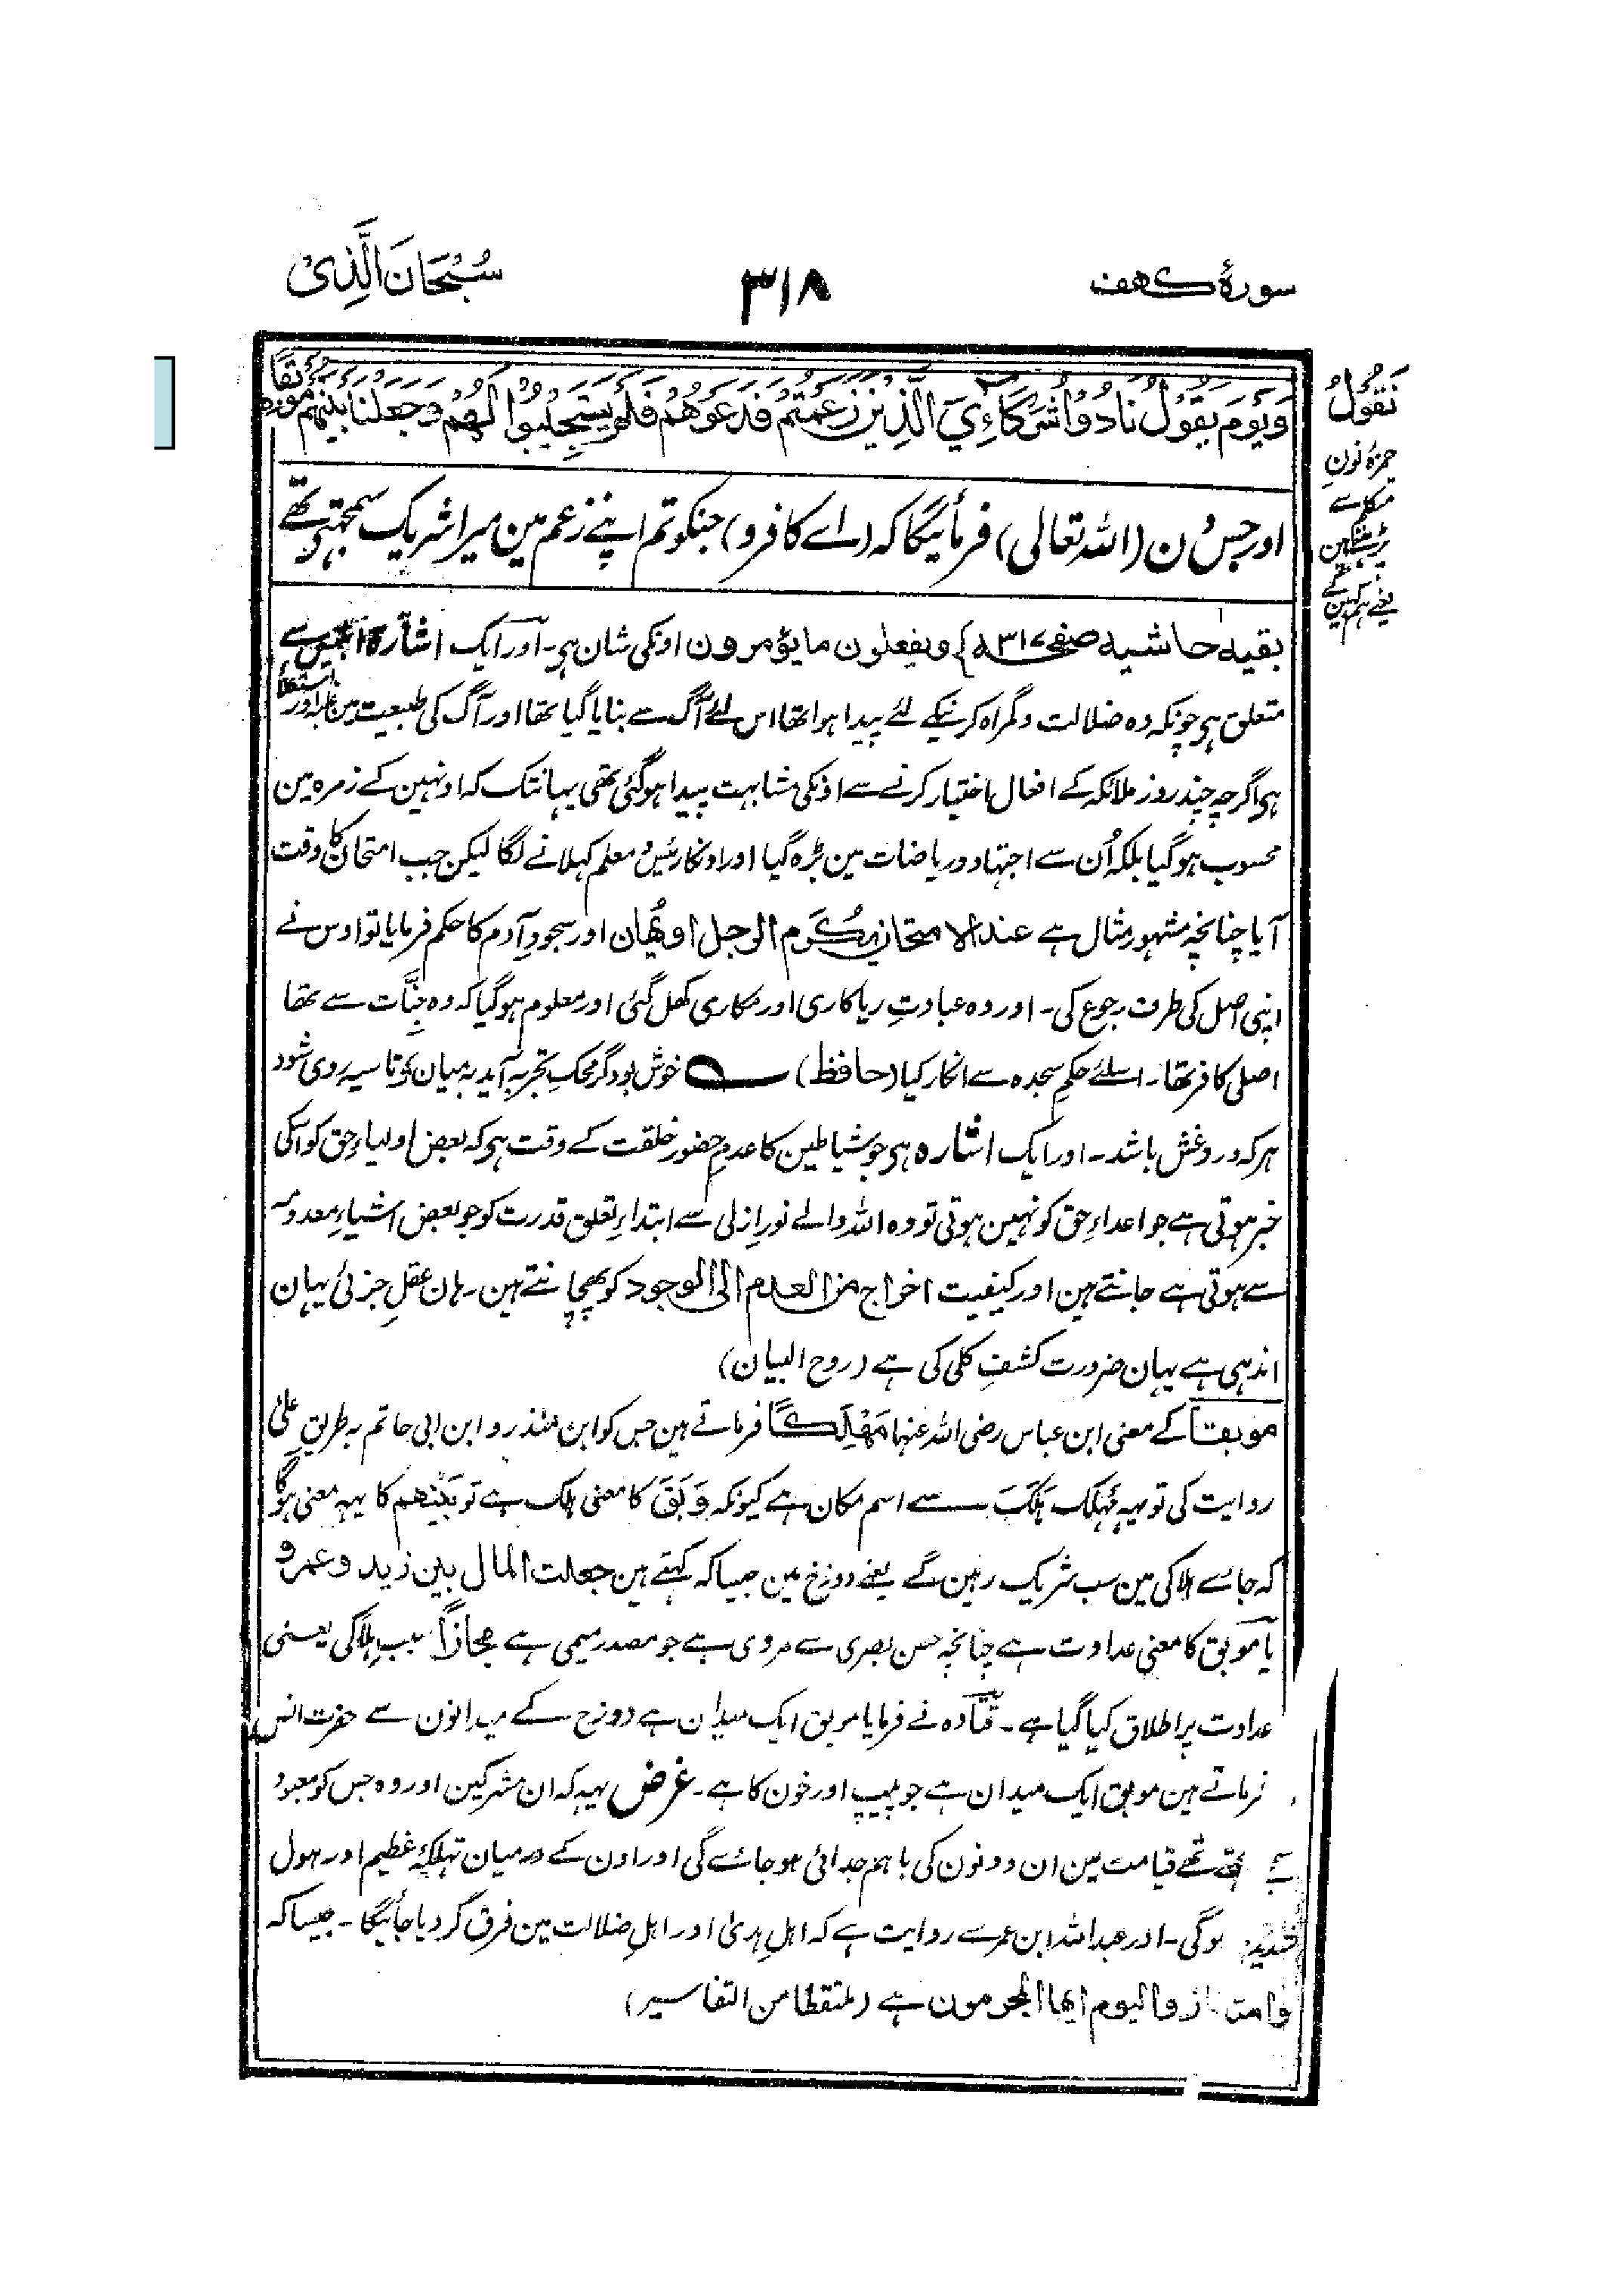 سورۂ کهف
۳۱۸
سُبْحَانَ الَّذِیْ
وَيَوْمَ يَقُوْلُ نَادُوْا شُرَكَآءِيَ الَّذِيْنَ زَعَمْتُمْ فَدَعَوْهُمْ فَلَمْ يَسْتَجِيْبُوْا لَهُمْ وَجَعَلْنَا بَيْنَهُمْ مَوْبِقًا
نَقُوْلُ
حمزہ نونِ
تکلم سے
پڑہتے ہین
یعنے ہم کہین گے
اور جس دن (اللہ تعالی) فرمائیگا کہ (اے کافرو) جنکو تم اپنے زعم مین میرا شریک سمجہتے تھے
بقیہ حاشیہ صفحہ ۳۱۷} ویفعلون ما یؤمرون اونکی شان ہی۔ اور ایک اشارہ ابلیس سے
متعلق ہی چونکہ وہ ضلالت و گمراہ کرنیکے لئے پیدا ہوا تھا اس لئے آگ سے بنایا گیا تھا اور آگ کی طبیعت مین علو اور استعلا
ہی اگرچہ چند روز ملائکہ کے افعال اختیار کرنے سے اونکی مشابہت پیدا ہوگئی تھی یہانتک کہ اونہین کے زمرہ مین
محسوب ہوگیا بلکہ اُن سے اجتہاد و ریاضات مین بڑہ گیا اور اونکا رئیس و معلم کہلانے لگا لیکن جب امتحان کا وقت
آیا چنانچہ مشہور مثال ہے عند الامتحان یُکرَم الرجل او یُهان اور سجودِ آدم کا حکم فرمایا تو اوس نے
اپنی اصل کی طرف رجوع کی۔ اور وہ عبادتِ ریاکاری اور مکاری کھل گئی اور معلوم ہوگیا کہ وہ جِنَّات سے تھا
اصلی کافر تھا۔ اسلئے حکمِ سجدہ سے انکار کیا (حافظ) خوش بود گر محکِ تجربہ آید بمیان تو تا سیہ روی شود
ہر کہ دروغش باشد۔ اور ایک اشارہ ہی جو شیاطین کا عدمِ حضورِ خلقت کے وقت ہی کہ بعض اولیاءِ حق کو اسکی
خبر ہوتی ہے جو اعداءِ حق کو نہین ہوتی تو وہ اللہ والے نورِ ازلی سے ابتداءِ تعلقِ قدرت کو جو بعض اشیاءِ معدومہ
سے ہوتی ہے جانتے ہین اور کیفیت اخراج من العدم الی الوجود کو پہچانتے ہین۔ ہان عقلِ جزئی یہان
اندہی ہے یہان ضرورت کشفِ کلی کی ہے (روح البیان)
موبقاً کے معنی ابن عباس رضی اللہ عنہما مَهْلِكًا فرماتے ہین جس کو ابن منذر و ابن ابی حاتم بطریقِ علی
روایت کی تو یہہ مَہلک ہَلَکَ سے اسم مکان ہے کیونکہ وَبَقَ کا معنی ہلک ہے تو بَیْنَهم کا یہہ معنی ہوگا
کہ جائے ہلاکی مین سب شریک رہین گے یعنے دوزخ مین جیسا کہ کہتے ہین جعلت المال بین زید و عمرو
یا موبق کا معنی عداوت ہے چنانچہ حسن بصری سے مروی ہے جو مصدر میمی ہے مجازاً سببِ ہلاکی یعنی
عداوت پر اطلاق کیا گیا ہے۔ قتادہ نے فرمایا موبق ایک میدان ہے دوزخ کے میدانون سے حضرت انس
فرماتے ہین موبق ایک میدان ہے جو پیپ اور خون کا ہے۔ غرض یہہ کہ ان مشرکین اور وہ جس کو معبود
تھے قیامت مین ان دونون کی باہم جدائی ہو جائے گی اور اون کے درمیان تہلکۂ عظیم اور ہول
شدید ہوگی۔ اور عبد اللہ ابن عمر سے روایت ہے کہ اہلِ ہدیٰ اور اہلِ ضلالت مین فرق کر دیا جائیگا۔ جیسا کہ
وامتازوا الیوم ایها المجرمون ہے (ملتقطا من التفاسیر)